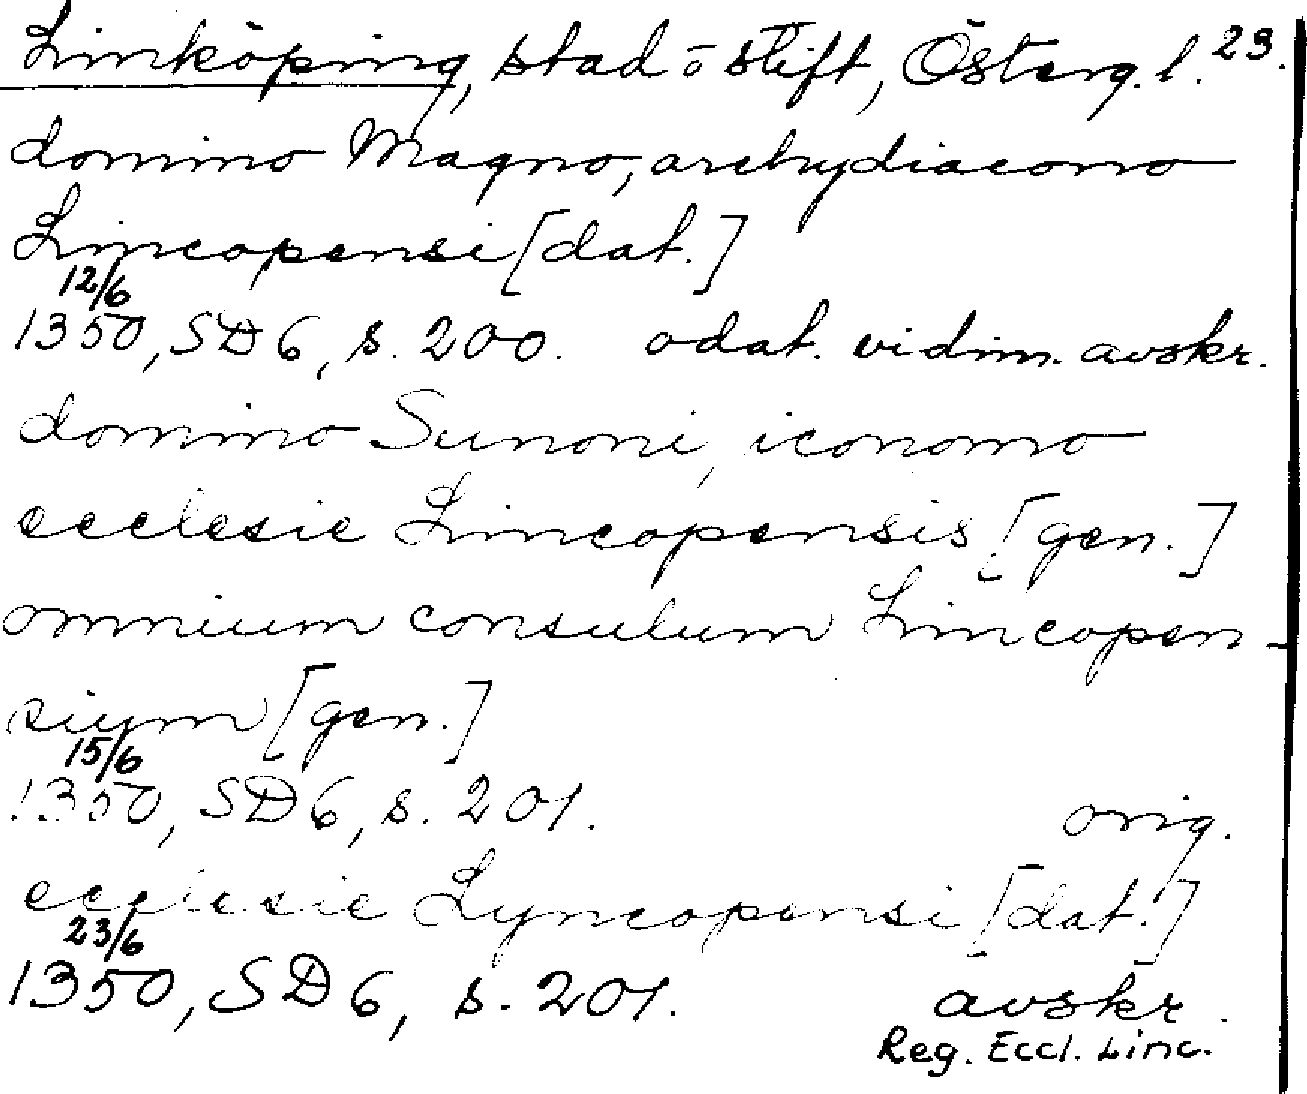 Linköping, stad o stift, Österg. l. 23.
domino Magno, archydiacono
Lincopensi [dat.]
12/6
1350, SD 6, s. 200. odat. vidim. avskr.
domino Sunoni, iconomo
ecclesie Lincopensis [gen.]
omnium consulum Lincopen-
sium [gen.]
15/6
1350, SD 6, s. 201. orig.
ecclesie Lyncopensi [dat.]
23/6
1350, SD 6, s. 201. avskr.
Reg. Eccl. Linc.